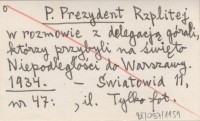 P. Prezydent Rzplitej
w rozmowie z delegacją górali,
którzy przybyli na święto
Niepodległości do Warszawy.
1934. – Światowid 11,
nr 47: , il. Tylko fot.